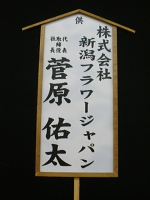 供
株式会社
新潟フラワージャパン
代表
取締役
社長
菅原 佑太